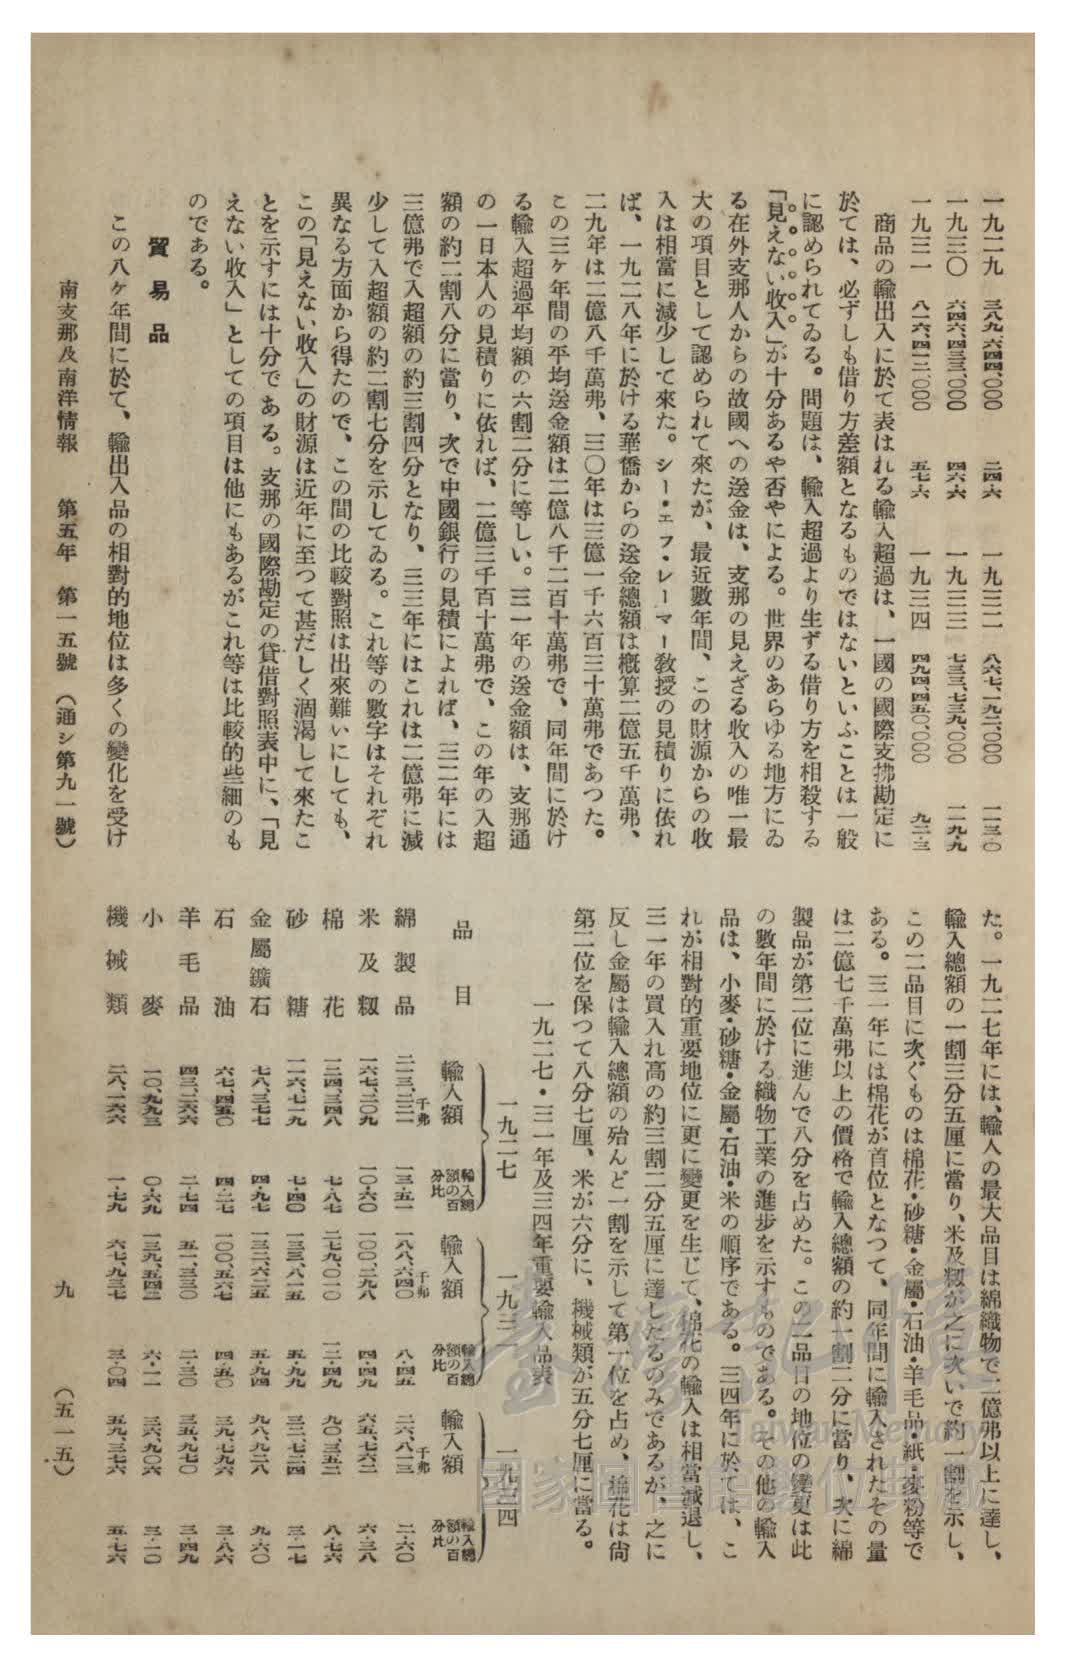 一九二九　三八九、六四四、〇〇〇　二四・六　一九三二　八六七、一九二、〇〇〇　一一三・〇
一九三〇　六四六、四三三、〇〇〇　四六・六　一九三三　七三三、七三九、〇〇〇　一一九・九
一九三一　八一六、四一三、〇〇〇　五七・六　一九三四　四九四、四五〇、〇〇〇　九二・三
商品の輸出入に於て表はれる輸入超過は、一國の國際支拂勘定に
於ては、必ずしも借り方差額となるものではないといふことは一般
に認められてゐる。問題は、輸入超過より生ずる借り方を相殺する
「見えない收入」が十分あるや否やによる。世界のあらゆる地方にゐ
る在外支那人からの故國への送金は、支那の見えざる收入の唯一最
大の項目として認められて來たが、最近數年間、この財源からの收
入は相當に減少して來た。シー・エフ・レーマー教授の見積りに依れ
ば、一九二八年に於ける華僑からの送金總額は概算二億五千萬弗、
二九年は二億八千萬弗、三〇年は三億一千六百三十萬弗であつた。
この三ケ年間の平均送金額は二億八千二百十萬弗で、同年間に於け
る輸入超過平均額の六割二分に等しい。三一年の送金額は、支那通
の一日本人の見積りに依れば、二億三千百十萬弗で、この年の入超
額の約二割八分に當り、次で中國銀行の見積によれば、三二年には
三億弗で入超額の約三割四分となり、三三年にはこれは二億弗に減
少して入超額の約二割七分を示してゐる。これ等の數字はそれぞれ
異なる方面から得たので、この間の比較對照は出來難いにしても、
この「見えない收入」の財源は近年に至つて甚だしく涸渇して來たこ
とを示すには十分である。支那の國際勘定の貸借對照表中に、「見
えない收入」としての項目は他にもあるがこれ等は比較的些細のも
のである。
貿易品
この八ケ年間に於て、輸出入品の相對的地位は多くの變化を受け
た。一九二七年には、輸入の最大品目は綿織物で二億弗以上に達し、
輸入總額の一割三分五厘に當り、米及籾が之に次いで約一割を示し、
この二品目に次ぐものは棉花・砂糖・金屬・石油・羊毛品・紙・麥粉等で
ある。三一年には棉花が首位となつて、同年間に輸入されたその量
は二億七千萬弗以上の價格で輸入總額の約一割二分に當り、次に綿
製品が第二位に進んで八分を占めた。この二品目の地位の變更は此
の數年間に於ける織物工業の進步を示すものである。その他の輸入
品は、小麥・砂糖・金屬・石油・米の順序である。三四年に於ては、こ
れが相對的重要地位に更に變更を生じて、棉花の輸入は相當減退し、
三一年の買入れ高の約三割二分五厘に達したるのみであるが、之に
反し金屬は輸入總額の殆んど一割を示して第一位を占め、棉花は尙
第二位を保つて八分七厘、米が六分に、機械類が五分七厘に當る。
一九二七・三一年及三四年重要輸入品表
品目　一九二七　一九三一　一九三四
輸入額　千弗　輸入總額の百分比　輸入額　千弗　輸入總額の百分比　輸入額　千弗　輸入總額の百分比
綿製品　二一三、二二一　一三・五一　一八八、六四〇　八・四五　二六、八一三　二・六〇
米及籾　一六七、二〇九　一〇・六〇　一〇〇、二九八　四・四九　六五、七六二　六・三八
棉花　一二四、三四八　七・八七　二七九、〇一〇　一二・四九　九〇、三五二　八・七六
砂糖　一一六、七一九　七・四〇　一三三、八一五　五・九九　三二、七二四　三・一七
金屬鑛石　七八、三七七　四・九七　一三二、六二五　五・九四　九八、九二八　九・六〇
石油　六七、四五〇　四・二七　一〇〇、五六七　四・五〇　三九、七九六　三・八六
羊毛品　四三、二六六　二・七四　五一、三三〇　二・三〇　三五、九七〇　三・四九
小麥　一〇、九九三　〇・六九　一三九、五四二　六・一一　三六、九〇六　三・一〇
機械類　二八、一六六　一・七九　六七、九三七　三・〇四　五九、三七六　五・七六
南支那及南洋情報　第五年　第一五號　（通シ第九一號）　九　（五一五）
臺灣記憶
Taiwan Memory
國家圖書館數位典藏